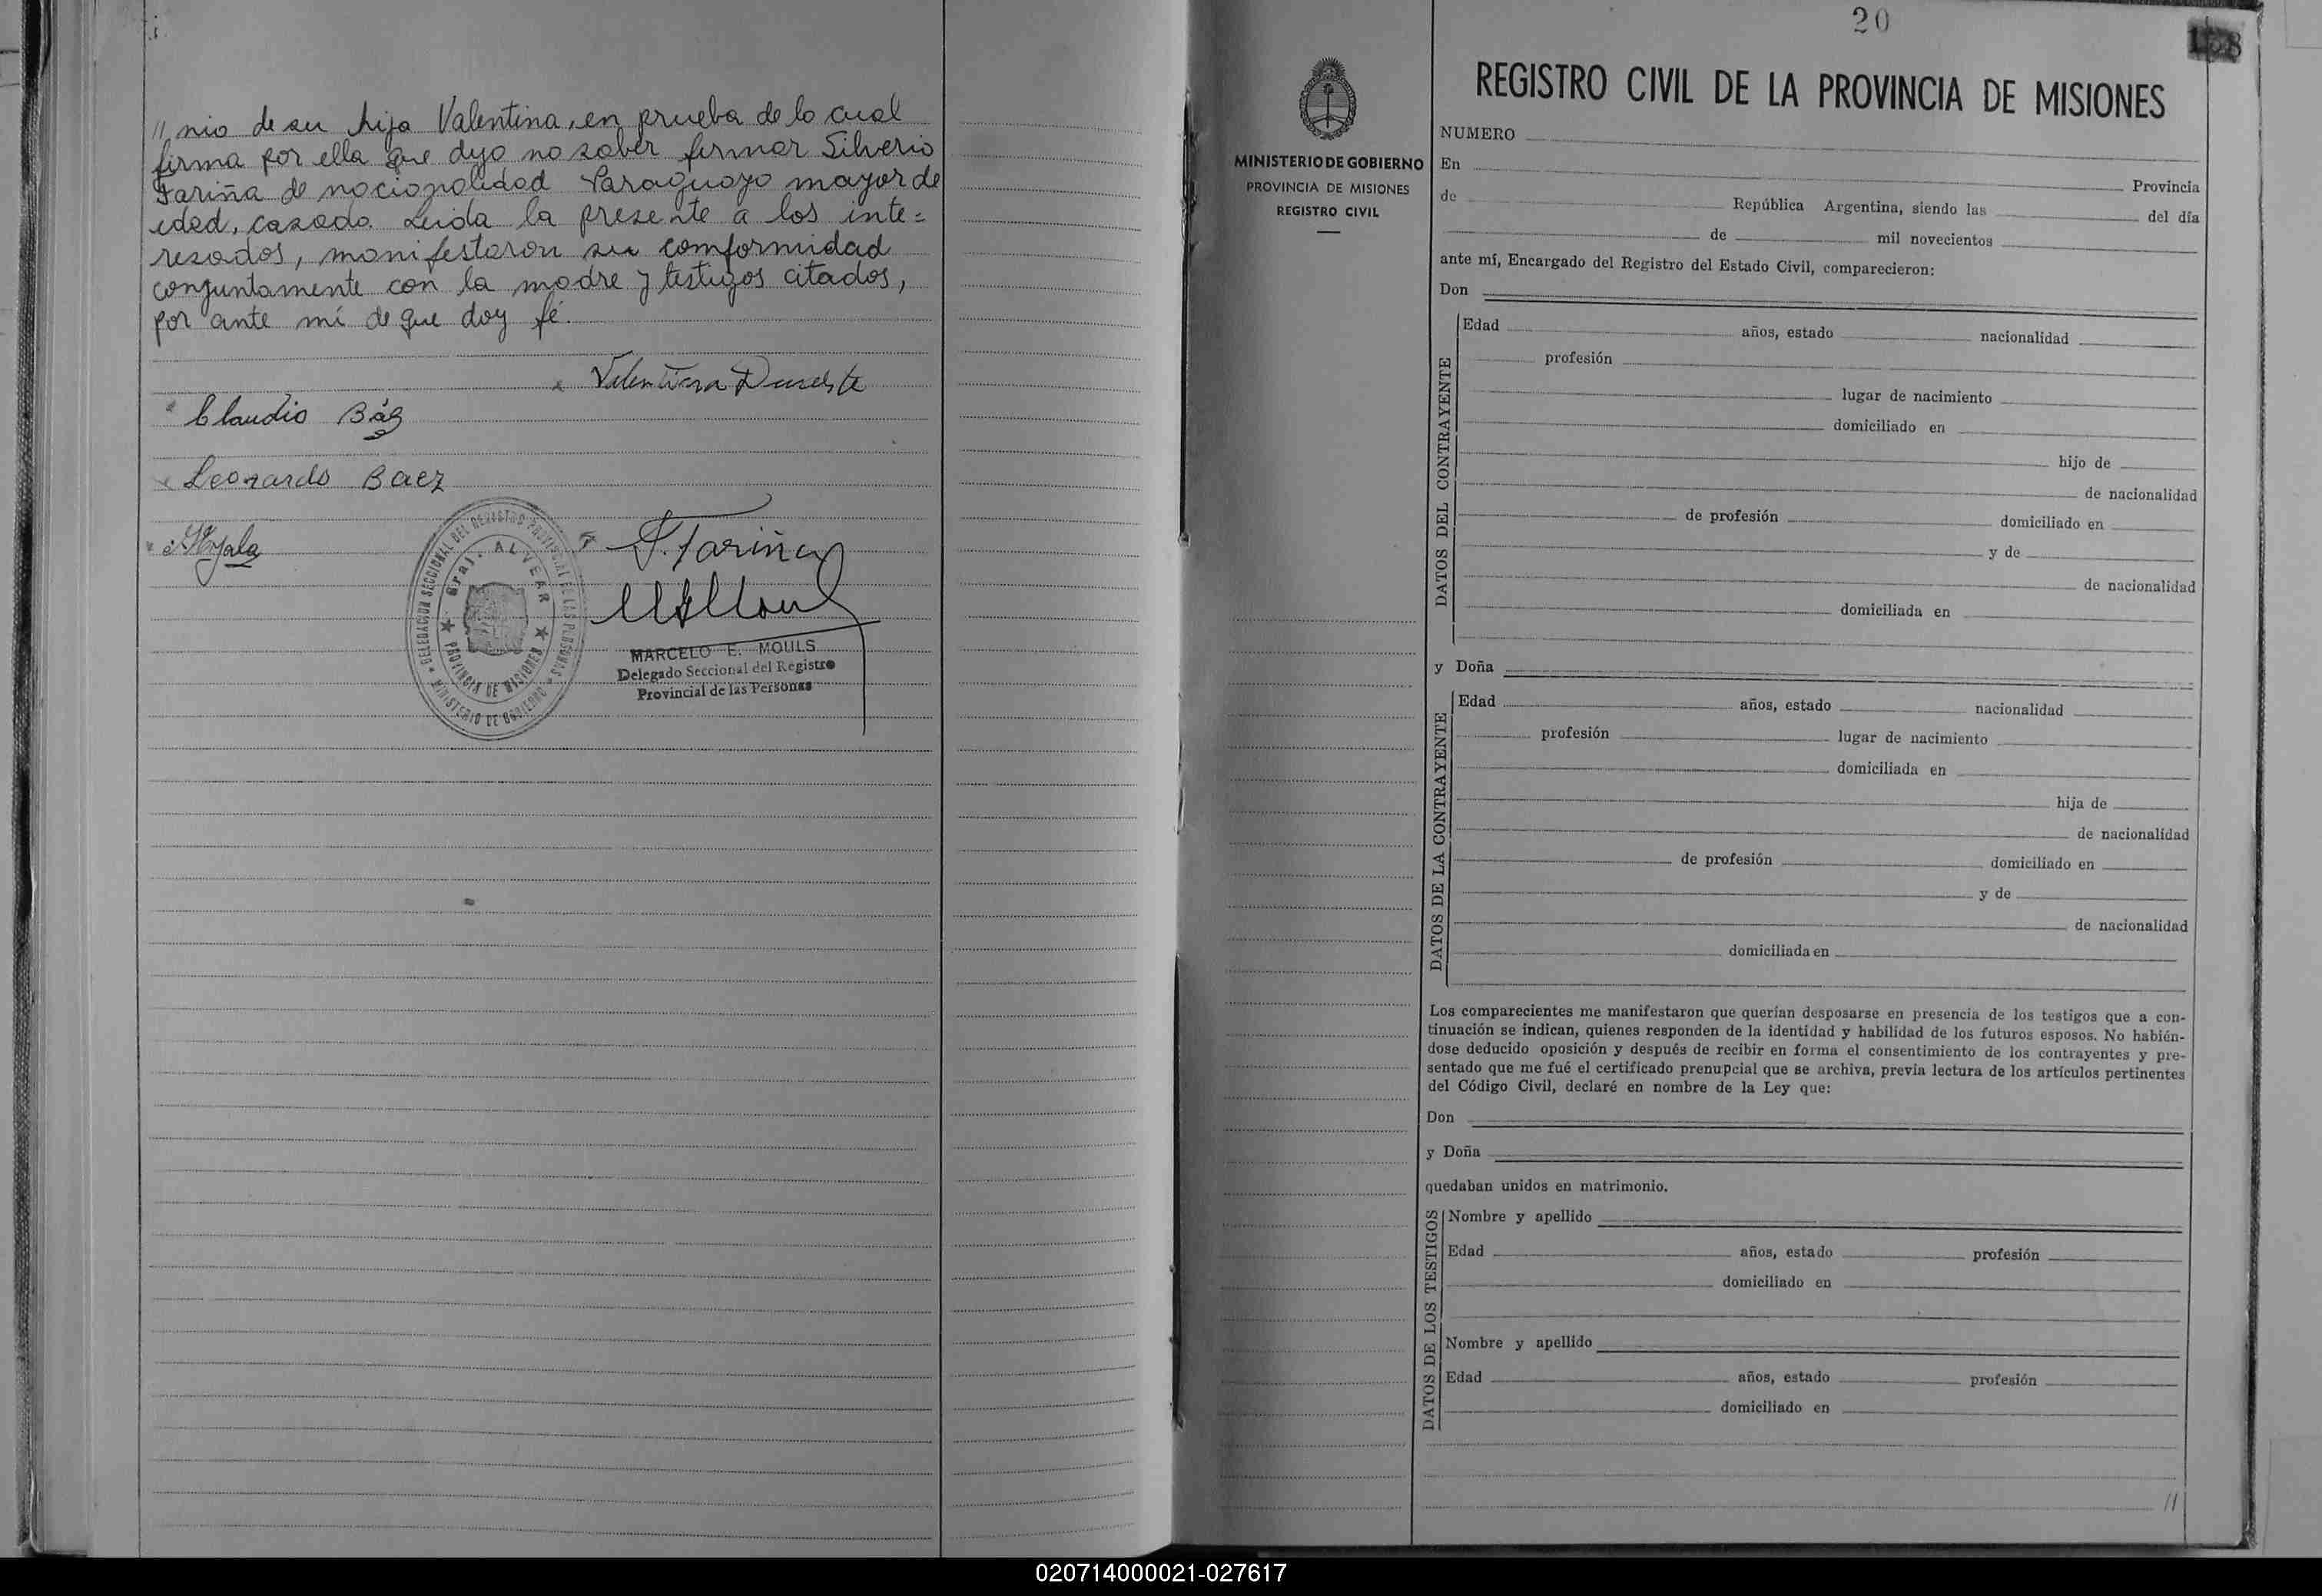 // nio de su hija Valentina, en prueba de lo cual
firma por ella que dijo no saber firmar Silverio
Fariña de nacionalidad Paraguayo mayor de
edad, casado. Leida la presente a los inte=
resados, manifestaron su comformidad
conjuntamente con la madre y testigos citados,
por ante mí de que doy fé.
Valentina
Claudio Báez
Leonardo Baez
Ayala
F. Fariña
DELEGACION SECCIONAL DEL REGISTRO PROVINCIAL DE LAS PERSONAS
MINISTERIO DE GOBIERNO
Gral. ALVEAR
PROVINCIA DE MISIONES
MARCELO E. MOULS
Delegado Seccional del Registro
Provincial de las Personas
20
REGISTRO CIVIL DE LA PROVINCIA DE MISIONES
MINISTERIO DE GOBIERNO
PROVINCIA DE MISIONES
REGISTRO CIVIL
NUMERO
En Provincia
de República Argentina, siendo las del día
de mil novecientos
ante mí, Encargado del Registro del Estado Civil, comparecieron:
Don
DATOS DEL CONTRAYENTE
Edad años, estado nacionalidad
profesión
lugar de nacimiento
domiciliado en
hijo de
de nacionalidad
de profesión domiciliado en
y de
de nacionalidad
domiciliada en
y Doña
DATOS DE LA CONTRAYENTE
Edad años, estado nacionalidad
profesión lugar de nacimiento
domiciliada en
hija de
de nacionalidad
de profesión domiciliado en
y de
de nacionalidad
domiciliada en
Los comparecientes me manifestaron que querían desposarse en presencia de los testigos que a con-
tinuación se indican, quienes responden de la identidad y habilidad de los futuros esposos. No habién-
dose deducido oposición y después de recibir en forma el consentimiento de los contrayentes y pre-
sentado que me fué el certificado prenupcial que se archiva, previa lectura de los artículos pertinentes
del Código Civil, declaré en nombre de la Ley que:
Don
y Doña
quedaban unidos en matrimonio.
DATOS DE LOS TESTIGOS
Nombre y apellido
Edad años, estado profesión
domiciliado en
Nombre y apellido
Edad años, estado profesión
domiciliado en
//
020714000021-027617